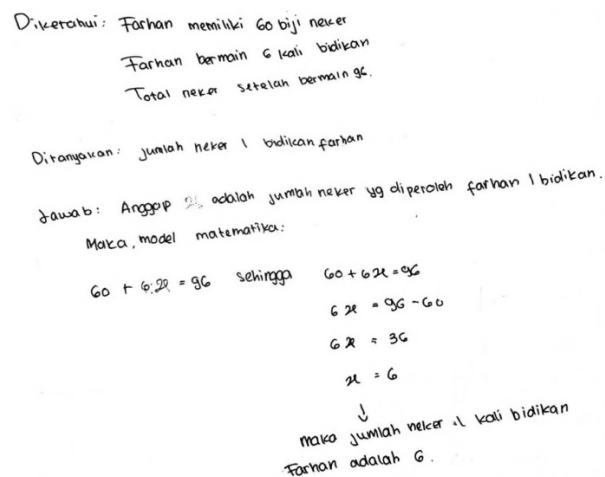 Diketahui: Farhan memiliki 60 biji neker
Farhan bermain 6 kali bidikan
Total neker setelah bermain 96.
Ditanyakan: jumlah neker 1 bidikan farhan
Jawab: Anggap x adalah jumlah neker yg diperoleh farhan 1 bidikan.
Maka, model matematika:
60 + 6.x = 96 sehingga 60 + 6x = 96
6x = 96 - 60
6x = 36
x = 6
↓
maka jumlah neker 1 kali bidikan
Farhan adalah 6.